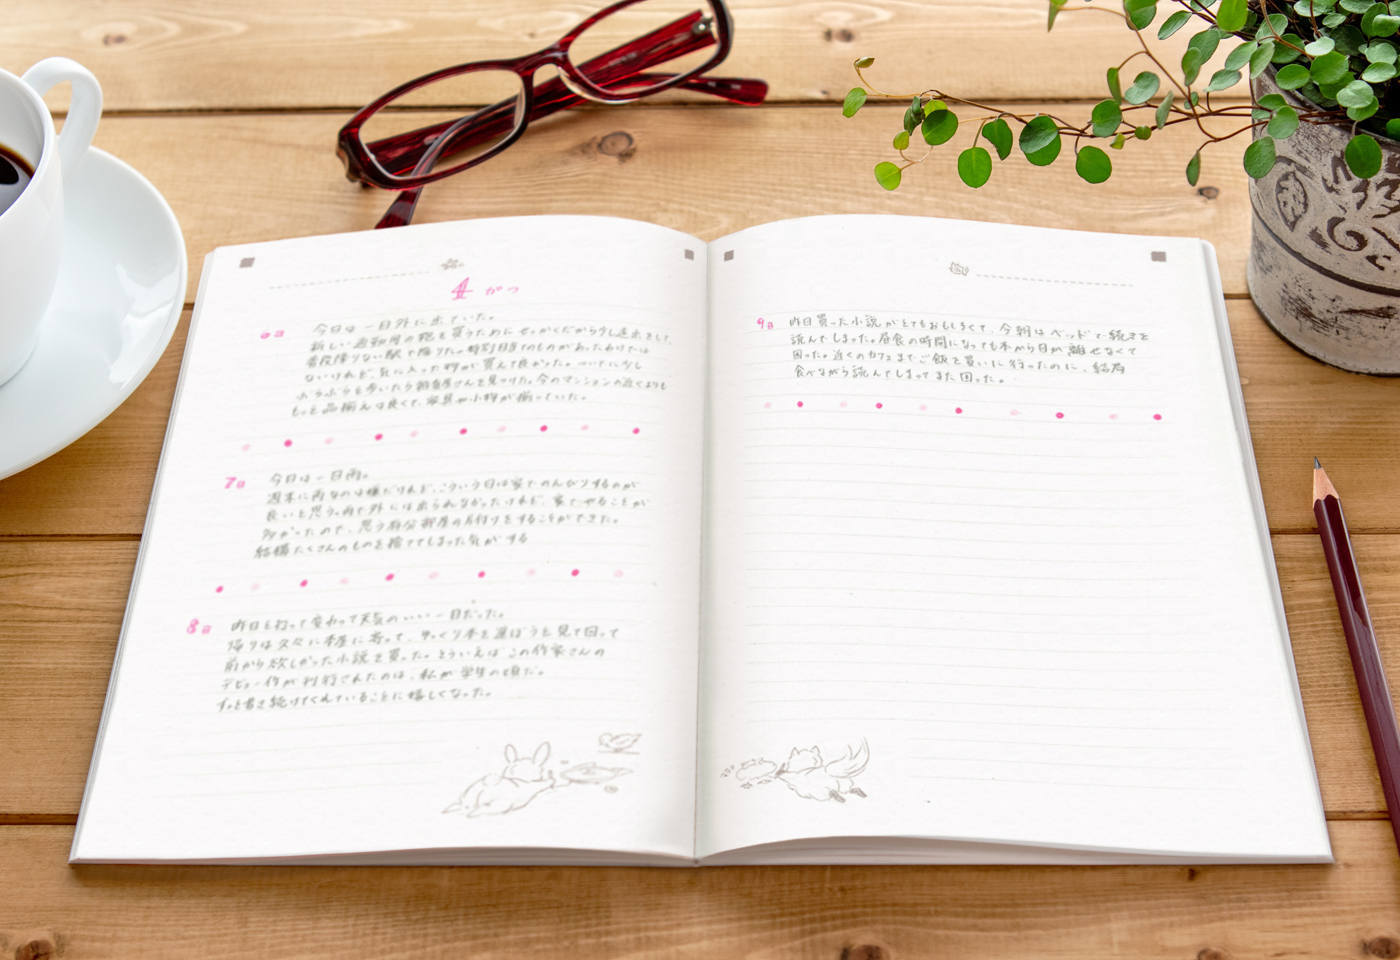 4 がつ
6日 今日は一日外に出ていた。
新しい通勤用の靴を買うためにせっかくだから少し遠出をして、
普段降りない駅で降りた。特別目当てのものがあったわけでは
ないけれど、気に入った物が買えて良かった。ついでに少し
ふらふらと歩いたら雑貨屋さんを見つけた。今のマンションの近くよりも
もっと品揃えは良くて、家具や小物が揃っていた。
7日 今日は一日雨。
週末に雨なのは嫌だけれど、こういう日は家でのんびりするのが
良いと思う。雨で外には出られなかったけれど、家でやることが
多かったので、思う存分部屋の片付けをすることができた。
結構たくさんのものを捨ててしまった気がする
8日 昨日と打って変わって天気のいい一日だった。
帰りは久々に本屋に寄って、ゆっくり本を選ぼうと見て回って
前から欲しかった小説を買った。そういえばこの作家さんの
デビュー作が刊行されたのは、私が学生の頃だ。
ずっと書き続けてくれていることに嬉しくなった。
9日 昨日買った小説がとてもおもしろくて、今朝はベッドで続きを
読んでしまった。昼食の時間になっても本から目が離せなくて
困った。近くのカフェまでご飯を買いに行ったのに、結局
食べながら読んでしまってまた困った。